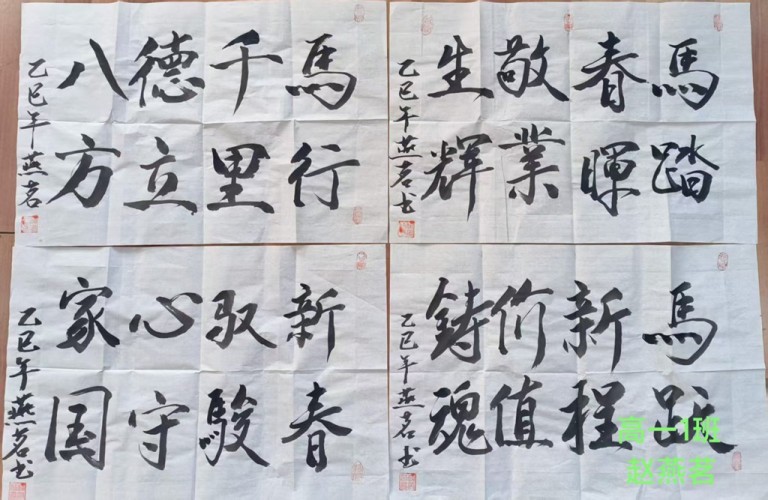 馬行
千里
德立
八方
乙巳年燕茗
馬踏
春暉
敬業
生輝
乙巳年燕茗书
新春
驭駿
心守
家国
乙巳年燕茗书
馬跃
新程
价值
鋳魂
乙巳年燕茗书
高一1班
赵燕茗